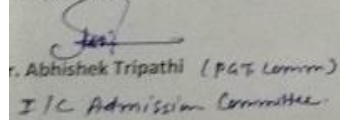 r. Abhishek Tripathi (PGT Comm)
I/C Admission Committee